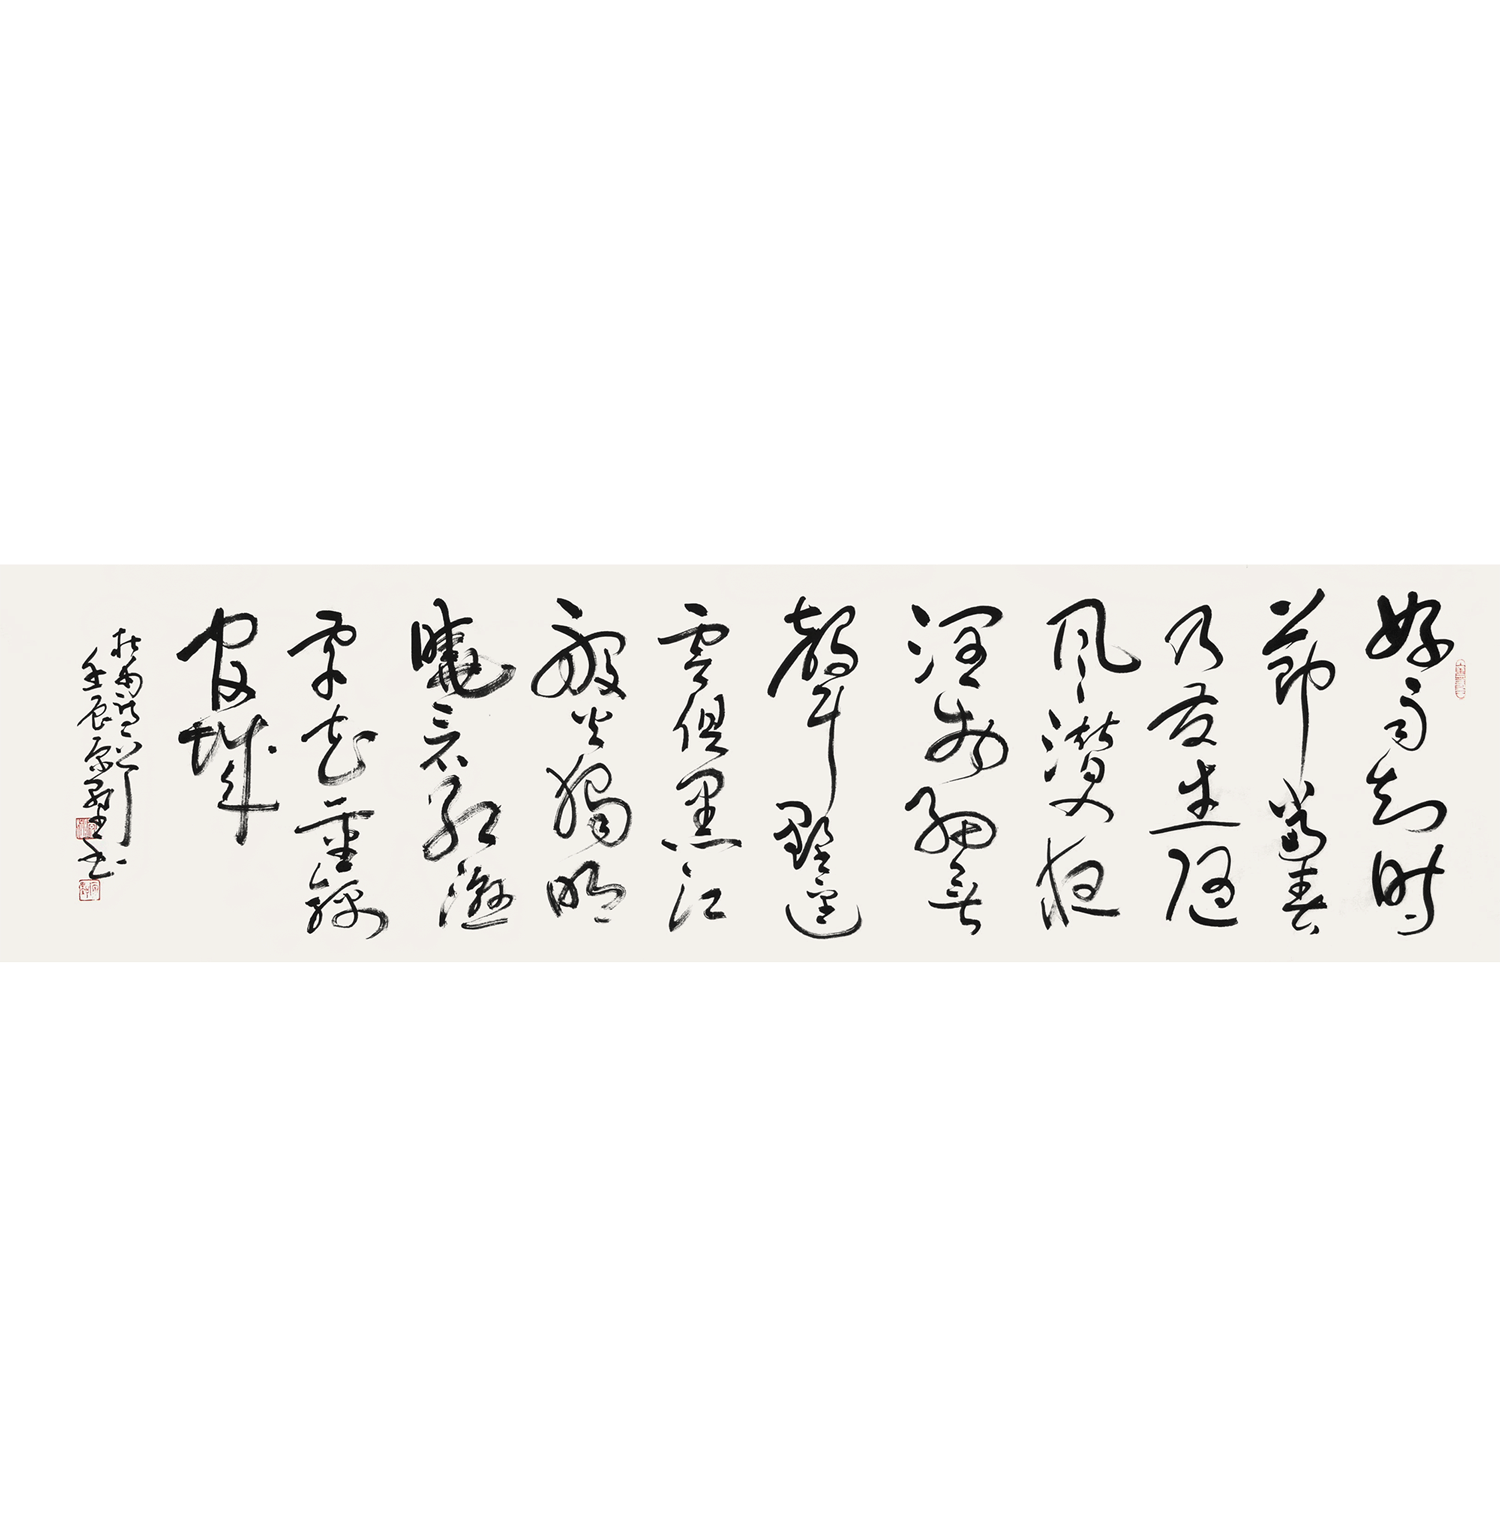 好雨知时
節當春
乃发生随
风潜入夜
潤物細無
聲野徑
雲俱黑江
船火獨明
曉看紅濕
處花重錦
官城
杜甫詩一首
壬辰 书